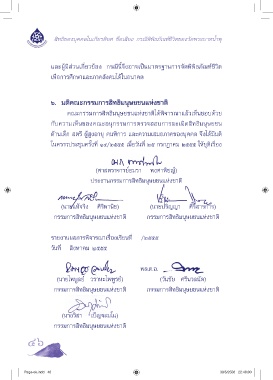 สิทธิของบุคคลในเกียรติยศ ชื่อเสียง
และผู้มีส่วนเกี่ยวข้อง กรณีนี้จึงอาจเป็นมาตรฐานการจัดพิพิธภัณฑ์ชีวิต
เพื่อการศึกษาและภาคสังคมได้ในอนาคต
๖. มติคณะกรรมการสิทธิมนุษยชนแห่งชาติ
คณะกรรมการสิทธิมนุษยชนแห่งชาติได้พิจารณาแล้วเห็นชอบด้วย
กับความเห็นของคณะอนุกรรมการตรวจสอบการละเมิดสิทธิมนุษยชน
ด้านเด็ก สตรี ผู้สูงอายุ คนพิการ และความเสมอภาคของบุคคล จึงได้มีมติ
ในคราวประชุมครั้งที่ เมื่อวันที่ กรกฎาคม ๒๕๕๕ ให้ยุติเรื่อง
(ศาสตราจารย์อมรา พงศาพิชญ์)
ประธานกรรมการสิทธิมนุษยชนแห่งชาติ
(นายแท้จริง ศิริพานิช) (นายปริญญา ศิริสารการ)
กรรมการสิทธิมนุษยชนแห่งชาติ กรรมการสิทธิมนุษยชนแห่งชาติ
รายงานผลการพิจารณาเรื่องเรียนที่ /๒๕๕๕
วันที่ สิงหาคม ๒๕๕๕
พล.ต.อ.
(นายไพบูลย์ วราหะไพฑูรย์) (วันชัย ศรีนวลนัด)
กรรมการสิทธิมนุษยชนแห่งชาติ กรรมการสิทธิมนุษยชนแห่งชาติ
(นางวิสา เบ็ญจะมโน)
กรรมการสิทธิมนุษยชนแห่งชาติ